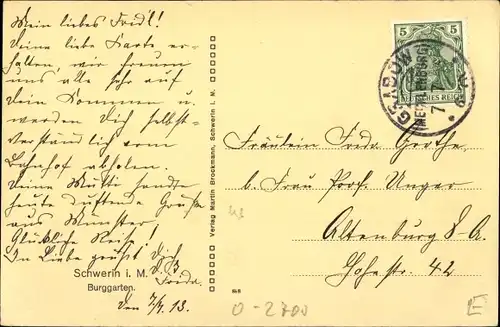 Mein liebes Friedl!
Deine liebe Karte er-
halten, wir freuen
uns alle sehr auf
Dein Kommen u.
werden Dich selbst-
verständlich vom
Bahnhof abholen.
Deine Mutti sandte
heute duftende Grüße
aus Münster
Glückliche Reise!
In Liebe grüßt Dich
D. Frieda.
Schwerin i. M.
Burggarten.
den 7/4. 13.
Verlag Martin Brockmann, Schwerin i. M.
5 5
DEUTSCHES REICH
GRABOW
(MECKLENBURG)
Fräulein Frieda Grothe
b. Frau Prof. Unger
Altenburg S. A.
Hohestr. 42
0-2700
E